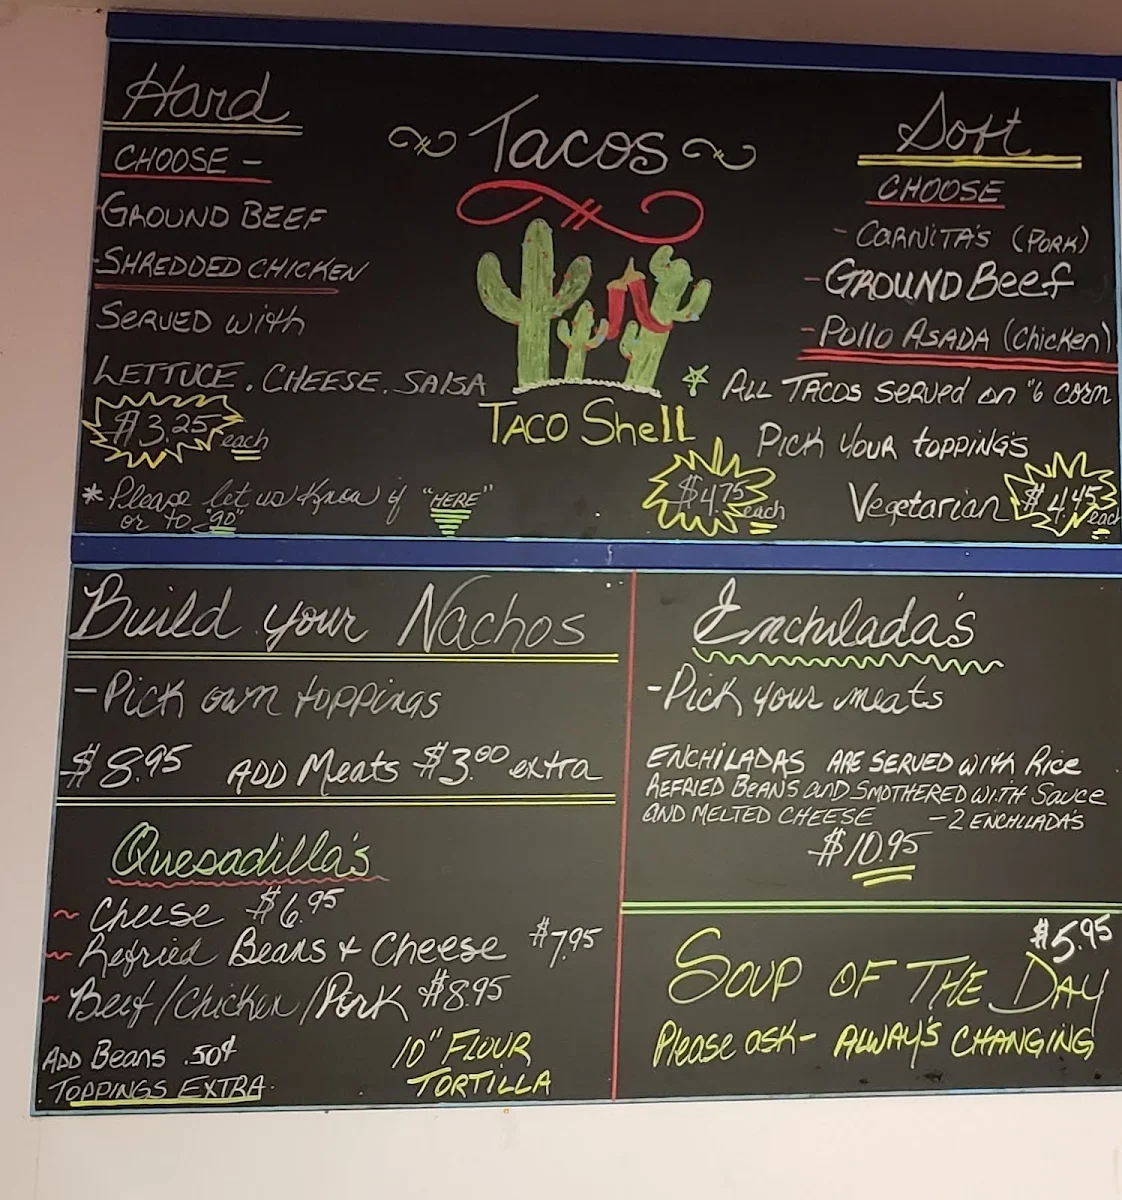 Hard
CHOOSE -
GROUND BEEF
-SHREDDED CHICKEN
SERVED with
LETTUCE. CHEESE. SALSA
$3.25 each
* Please let us know if "HERE"
or to "go"
Tacos
TACO Shell
Soft
CHOOSE
- CARNITA'S (PORK)
- GROUND Beef
- Pollo ASADA (Chicken)
ALL TACOS SERVED on "6 corn
Pick your toppings
$4.75 each
Vegetarian $4.45 each
Build your Nachos
-Pick own toppings
$8.95 ADD Meats $3.00 extra
Quesadilla's
~ Cheese $6.95
~ Refried Beans + Cheese $7.95
~ Beef/Chicken/Pork $8.95
ADD Beans .50¢
TOPPINGS EXTRA.
10" FLOUR
TORTILLA
Enchilada's
-Pick your meats
ENCHILADAS ARE SERVED with Rice
REFRIED BEANS and SMOTHERED WITH Sauce
AND MELTED CHEESE - 2 ENCHILADA'S
$10.95
$5.95
SOUP OF THE DAY
Please ask- ALWAY'S CHANGING